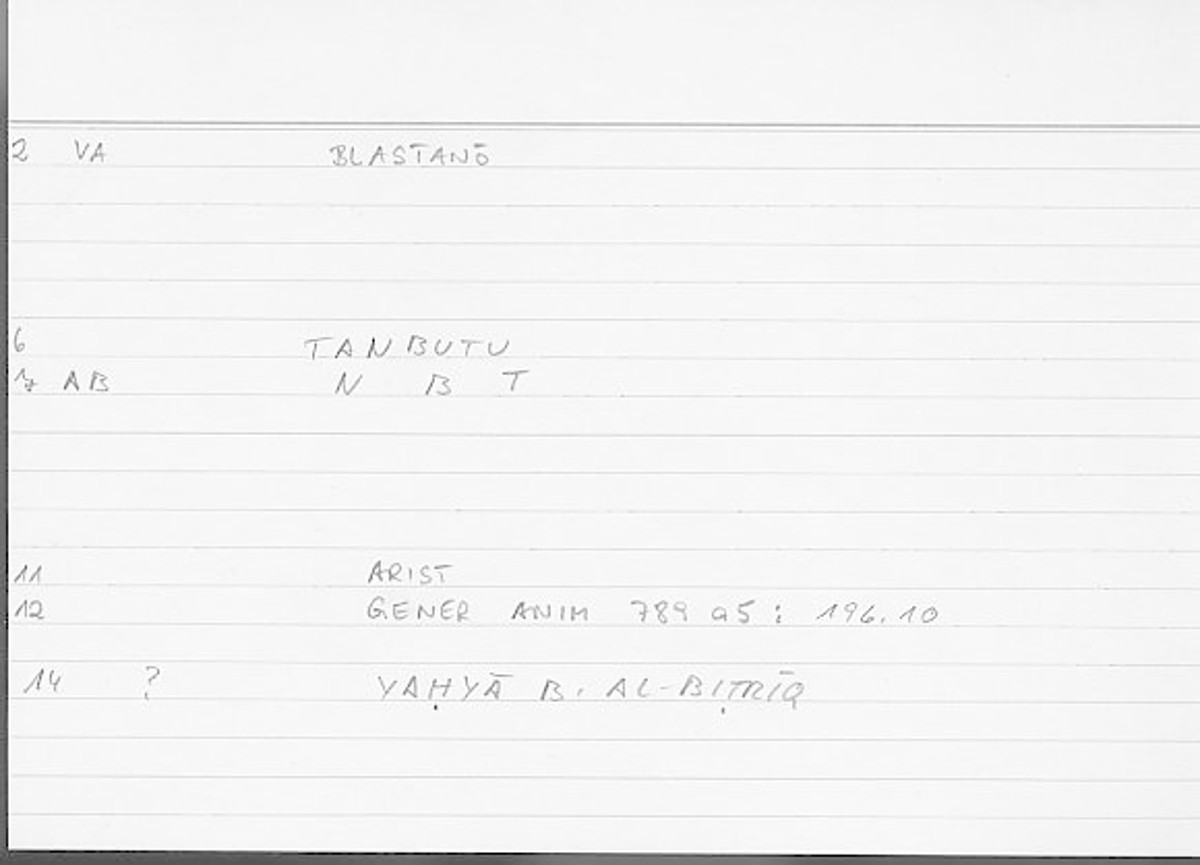 2 VA BLASTANŌ
6 TANBUTU
7 AB N B T
11 ARIST
12 GENER ANIM 789 a5 : 196.10
14 ? YAḤYĀ B. AL-BIṬRĪQ